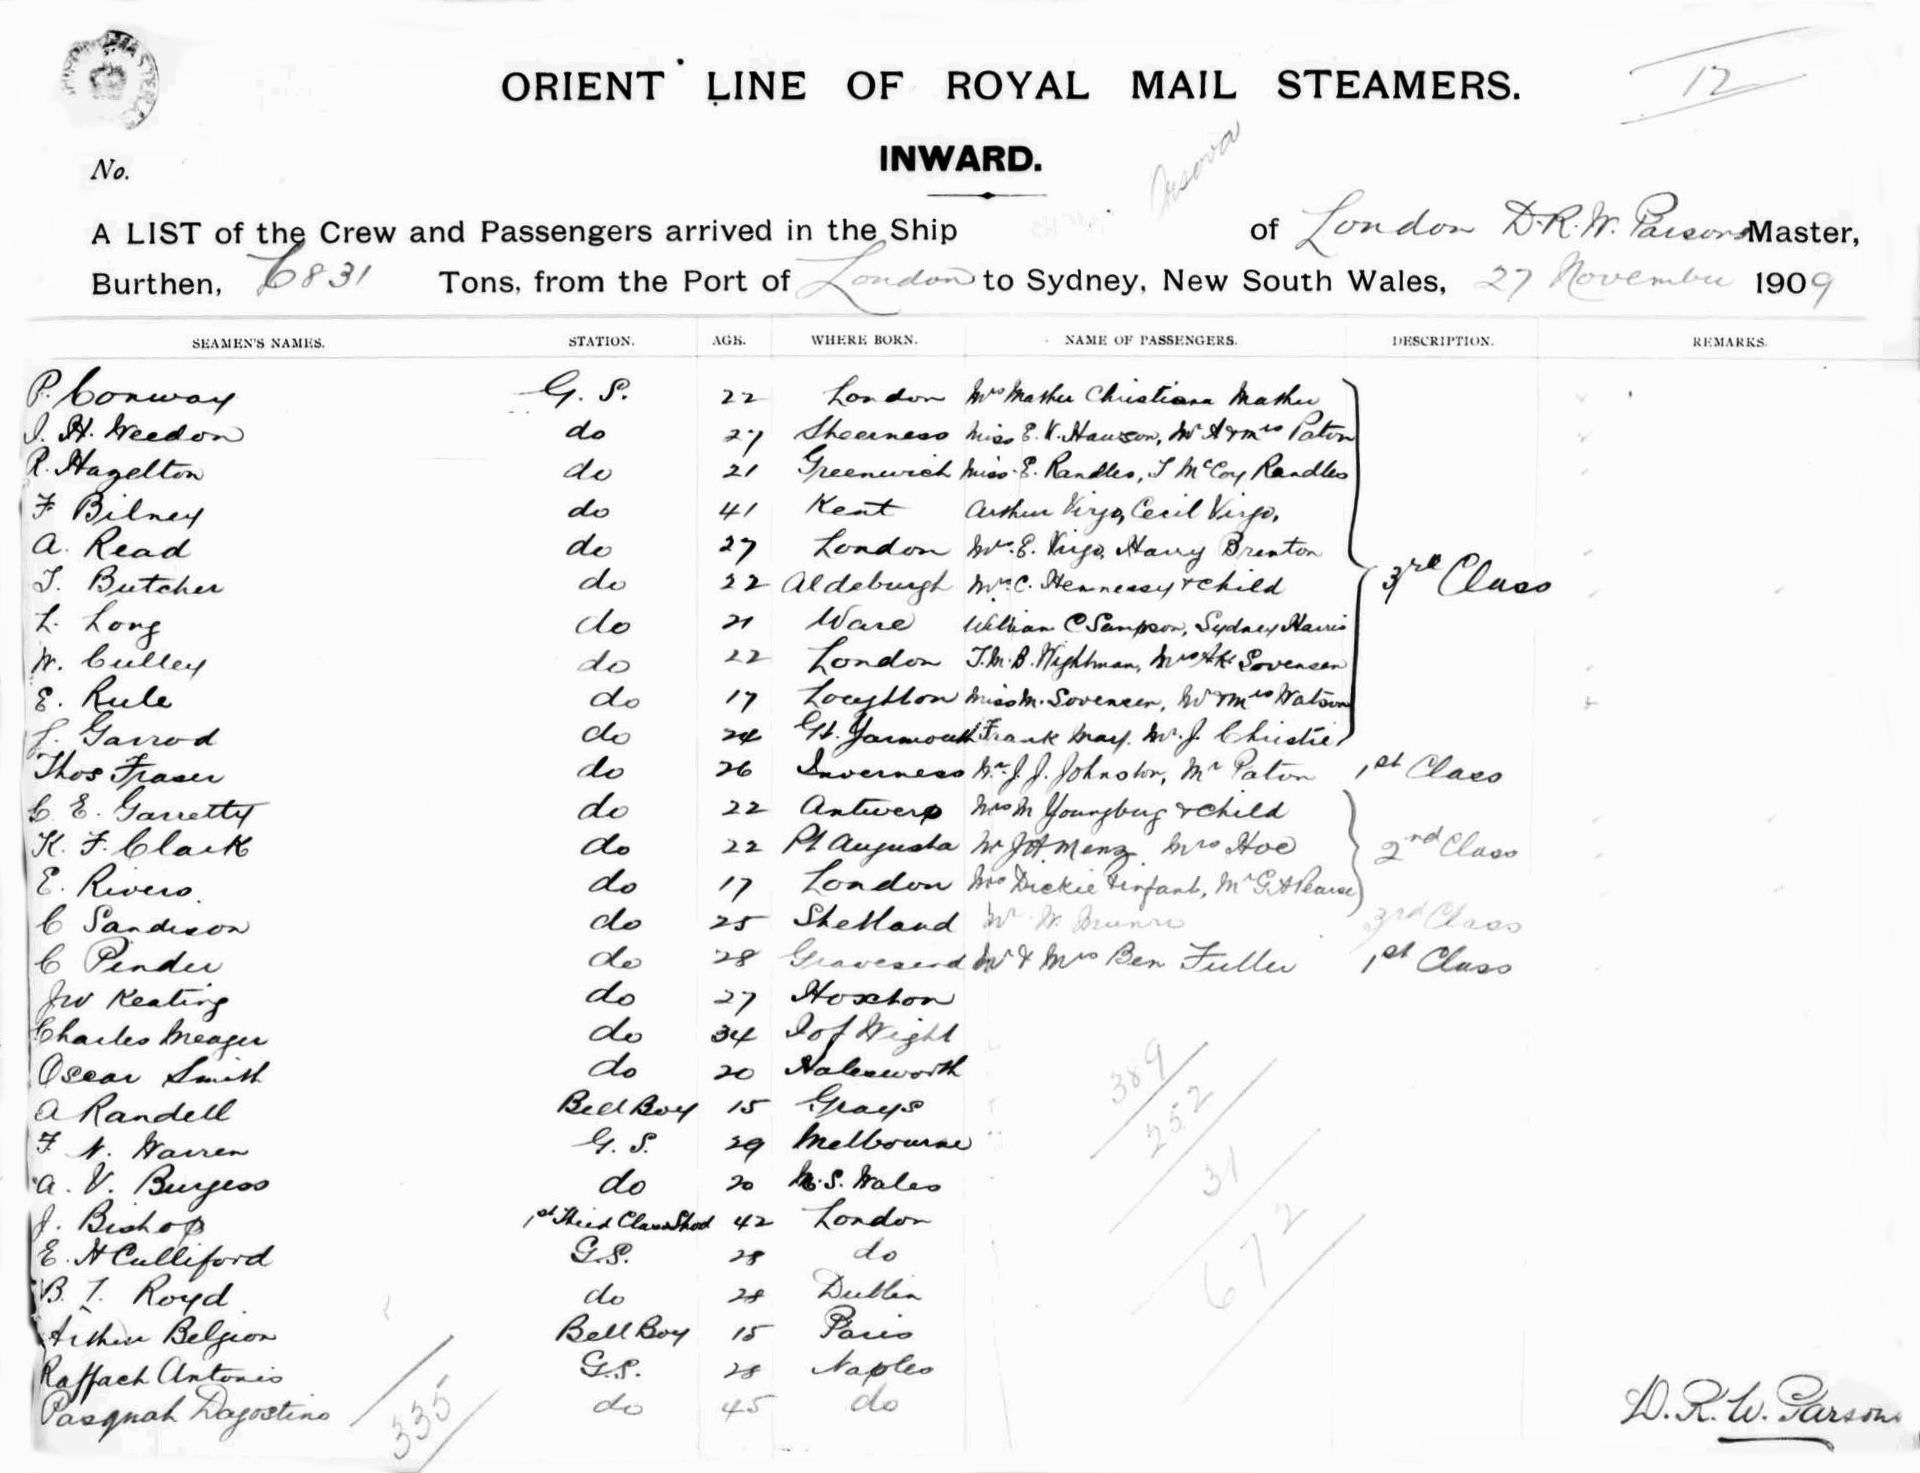 12
ORIENT LINE OF ROYAL MAIL STEAMERS.
INWARD.
Orsova
No.
A LIST of the Crew and Passengers arrived in the Ship of London D.R.W. Parsons Master,
Burthen, 6831 Tons, from the Port of London to Sydney, New South Wales, 27 November 1909
SEAMEN'S NAMES. STATION. AGE. WHERE BORN. NAME OF PASSENGERS. DESCRIPTION. REMARKS.
P. Conway G. S. 22 London Mrs Mather Christiana Mather
J. H. Weedon do 27 Sheerness Miss E. V. Hawson, Mr A & Mrs Paton
R. Hazelton do 21 Greenwich Miss E. Randles, T McCoy Randles
F Bilney do 41 Kent Arthur Virgo, Cecil Virgo,
A. Read do 27 London Mrs. E. Virgo, Harry Brenton
T. Butcher do 22 Aldeburgh Mrs C. Hennessy & child 3rd Class
L. Long do 21 Ware William C Sampson, Sydney Harris
W. Culley do 22 London T. M. B. Wightman, Mrs AK Sorensen
E. Rule do 17 Loughton Miss M. Sorensen, Mr & Mrs Watson
L. Garrod do 24 Gt. Yarmouth Frank May. Mr. J. Christie
Thos Fraser do 26 Inverness Mr. J. J. Johnston, Mr Paton 1st Class
C. E. Garretty do 22 Antwerp Mrs M Youngbug & child
K. F. Clark do 22 Pt Augusta Mr J A. Menz Mrs Hoe 2nd Class
E. Rivers. do 17 London Mrs Dickie & infant, Mr G. A Pearse
C Sandison do 25 Shetland Mr W. Munro 3rd Class
C Pinder do 28 Gravesend Mr & Mrs Ben Fuller 1st Class
JW Keating do 27 Hoxton
Charles Meager do 34 I of Wight
Oscar Smith do 20 Halesworth
A Randell Bell Boy 15 Grays
F N. Warren G. S. 29 Melbourne
A. V. Burgess do 20 N. S. Wales
J. Bishop 1st Third Class Stwd 42 London
E. H Culliford G.S. 28 do
B. T. Royd do 28 Dublin
Arthur Belgion Bell Boy 15 Paris
Raffaeh Antonio G.S. 28 Naples
Pasquah Dagostino do 45 do
335
389
252
31
672
D. R. W. Parsons